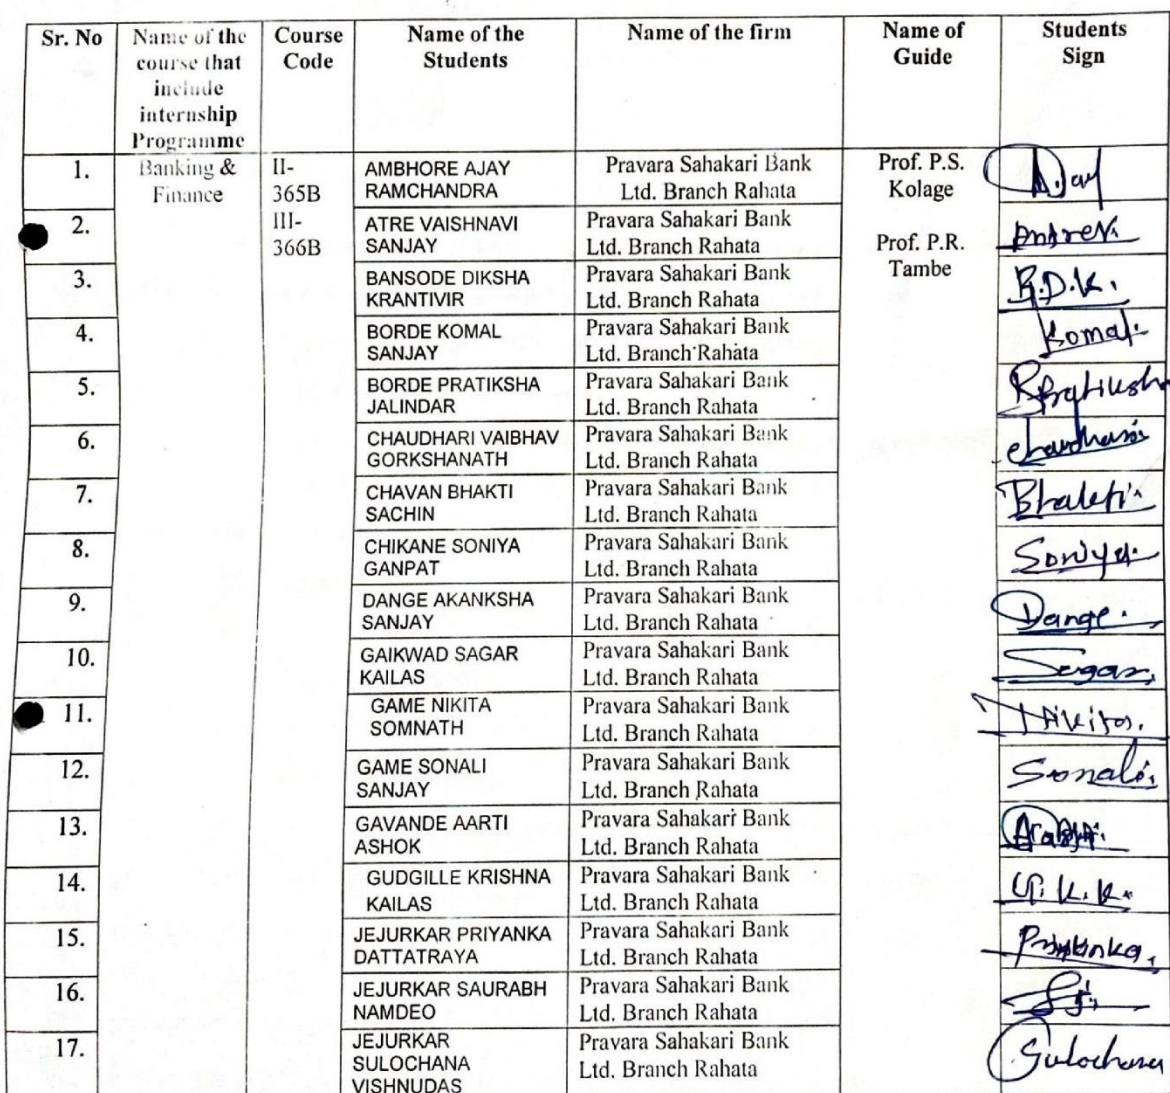 Sr. No
Name of the
course that
include
internship
Programme
Course
Code
Name of the
Students
Name of the firm
Name of
Guide
Students
Sign
1.
Banking &
Finance
II-
365B
III-
366B
AMBHORE AJAY
RAMCHANDRA
Pravara Sahakari Bank
Ltd. Branch Rahata
Prof. P.S.
Kolage
Prof. P.R.
Tambe
A.Jay
2.
ATRE VAISHNAVI
SANJAY
Pravara Sahakari Bank
Ltd. Branch Rahata
3.
BANSODE DIKSHA
KRANTIVIR
Pravara Sahakari Bank
Ltd. Branch Rahata
B.D.K.
4.
BORDE KOMAL
SANJAY
Pravara Sahakari Bank
Ltd. Branch Rahata
Komal.
5.
BORDE PRATIKSHA
JALINDAR
Pravara Sahakari Bank
Ltd. Branch Rahata
6.
CHAUDHARI VAIBHAV
GORKSHANATH
Pravara Sahakari Bank
Ltd. Branch Rahata
7.
CHAVAN BHAKTI
SACHIN
Pravara Sahakari Bank
Ltd. Branch Rahata
Bhakti.
8.
CHIKANE SONIYA
GANPAT
Pravara Sahakari Bank
Ltd. Branch Rahata
Soniya.
9.
DANGE AKANKSHA
SANJAY
Pravara Sahakari Bank
Ltd. Branch Rahata
Dange.
10.
GAIKWAD SAGAR
KAILAS
Pravara Sahakari Bank
Ltd. Branch Rahata
Sagar.
11.
GAME NIKITA
SOMNATH
Pravara Sahakari Bank
Ltd. Branch Rahata
Nikita.
12.
GAME SONALI
SANJAY
Pravara Sahakari Bank
Ltd. Branch Rahata
Sonali.
13.
GAVANDE AARTI
ASHOK
Pravara Sahakari Bank
Ltd. Branch Rahata
14.
GUDGILLE KRISHNA
KAILAS
Pravara Sahakari Bank
Ltd. Branch Rahata
G.K.K.
15.
JEJURKAR PRIYANKA
DATTATRAYA
Pravara Sahakari Bank
Ltd. Branch Rahata
Priyanka.
16.
JEJURKAR SAURABH
NAMDEO
Pravara Sahakari Bank
Ltd. Branch Rahata
17.
JEJURKAR
SULOCHANA
VISHNUDAS
Pravara Sahakari Bank
Ltd. Branch Rahata
Sulochana